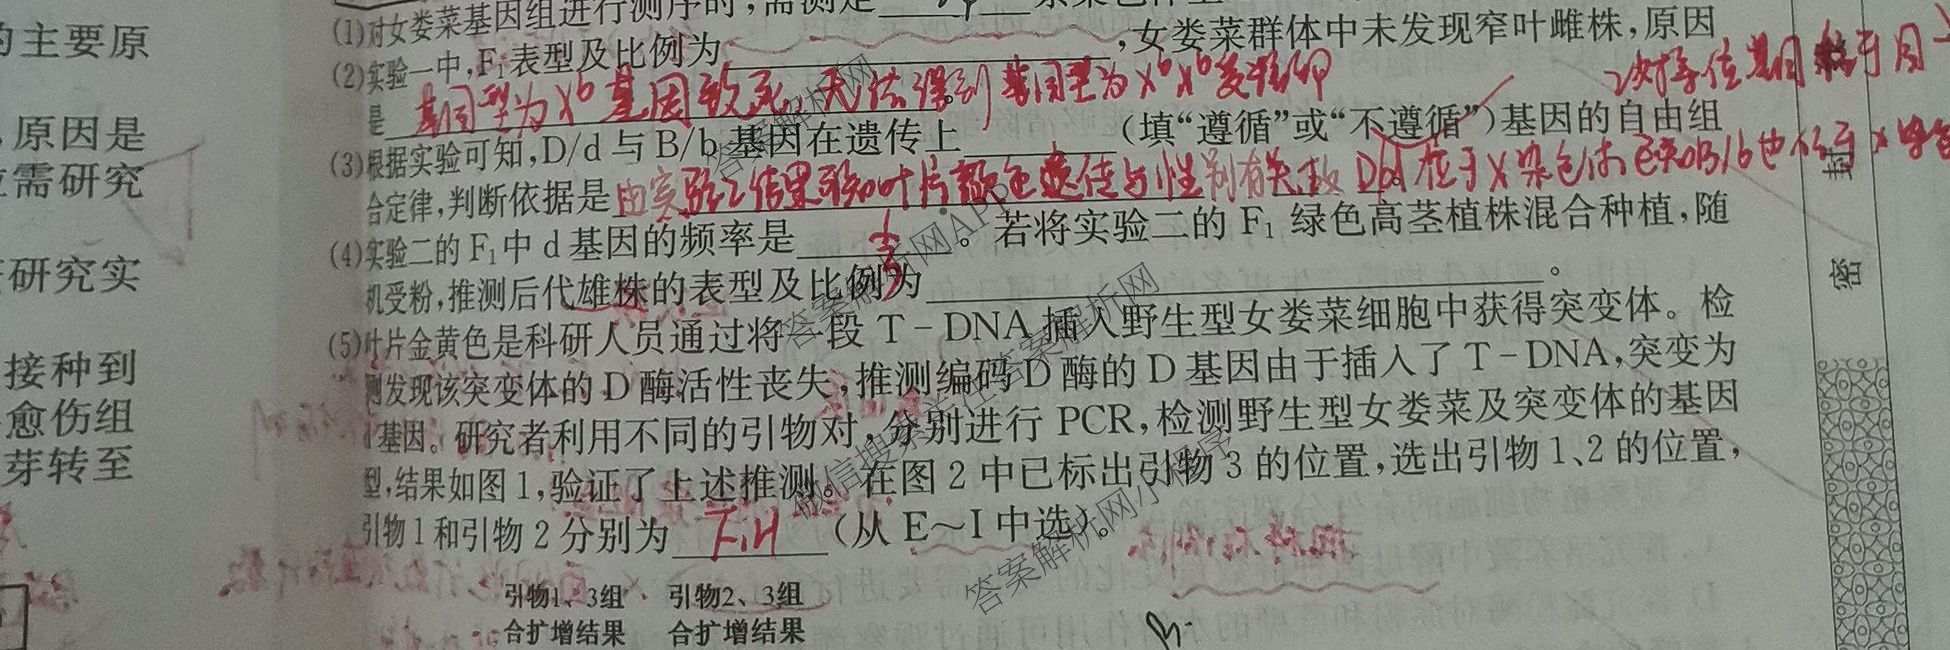 的主要原
原因是
需研究
研究实
接种到
愈伤组
芽转至
(1)对女娄菜基因组进行测序时,需测定 条染色体上
(2)实验一中,F₁表型及比例为 ,女娄菜群体中未发现窄叶雌株,原因
是 基因型为X^b 基因致死,无法得到基因型为X^bX^b受精卵 。
2对等位基因位于同一
(3)根据实验可知,D/d与B/b基因在遗传上 (填“遵循”或“不遵循”)基因的自由组
合定律,判断依据是 由实验2结果可知叶片颜色遗传与性别有关,故D/d位于X染色体,已知B/b也位于X染色 。
(4)实验二的F₁中d基因的频率是 1/3 。若将实验二的F₁绿色高茎植株混合种植,随
机受粉,推测后代雄株的表型及比例为 。
(5)叶片金黄色是科研人员通过将一段T-DNA插入野生型女娄菜细胞中获得突变体。检
测发现该突变体的D酶活性丧失,推测编码D酶的D基因由于插入了T-DNA,突变为
d基因。研究者利用不同的引物对,分别进行PCR,检测野生型女娄菜及突变体的基因
型,结果如图1,验证了上述推测。在图2中已标出引物3的位置,选出引物1、2的位置,
引物1和引物2分别为 F、H (从E~I中选)。
引物1、3组 引物2、3组
合扩增结果 合扩增结果
密
答案解析网
答案解析网APP
答案解析网
微信搜索关注答案解析网
答案解析网小程序